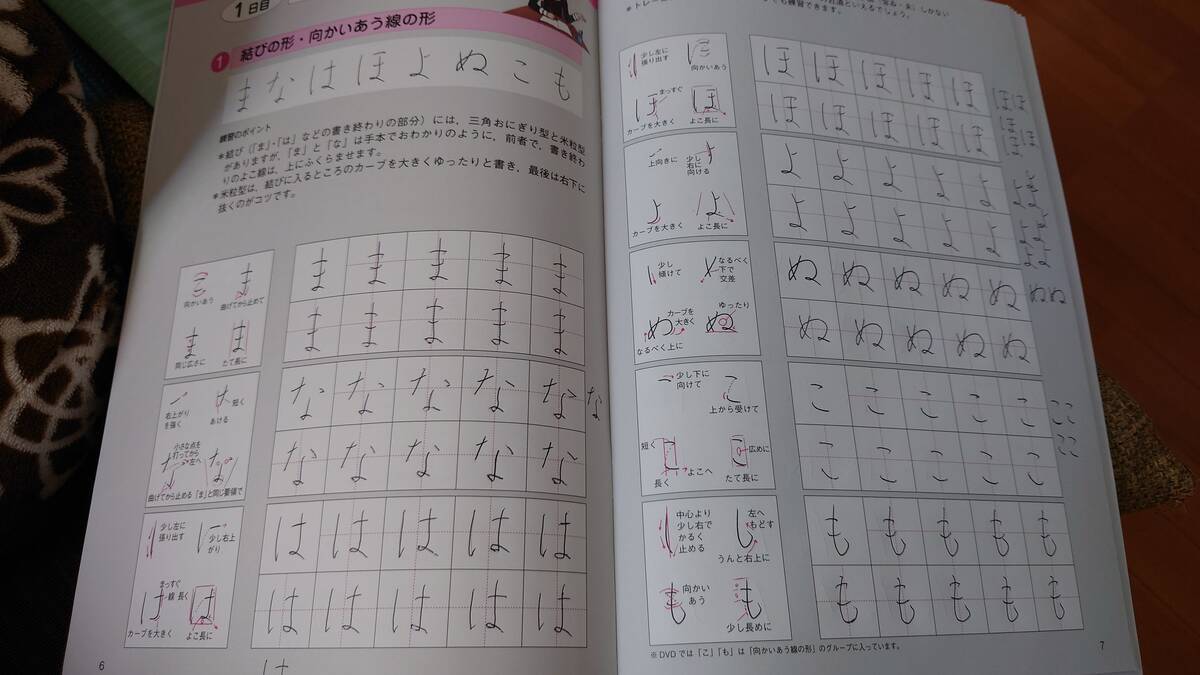 1日目
1 結びの形・向かいあう線の形
まなはほよぬこも
練習のポイント
*結び(「ま」・「は」などの書き終わりの部分)には,三角おにぎり型と米粒型
がありますが,「ま」と「な」は手本でおわかりのように,前者で,書き終わ
りのよこ線は,上にふくらませます。
*米粒型は,結びに入るところのカーブを大きくゆったりと書き,最後は右下に
抜くのがコツです。
向かいあう
ま
曲げてから止めて
ま
同じ広さに
ま
たて長に
ままままま
ままままま
右上がり
を強く
短く
あける
小さな点を
打ってから
左へ
な
曲げてから止める
「ま」と同じ要領で
ななななな な
ななななな
少し左に
張り出す
少し右上
がり
まっすぐ
線 長く
は
カーブを大きく
は
よこ長に
ははははは
ははははは
は
6
も練習できます。
少し左に
張り出す
向かいあう
まっすぐ
ほ
カーブを大きく
ほ
よこ長に
ほほほほほ
ほほほほほ
上向きに
少し
右に
向ける
よ
カーブを大きく
よ
よこ長に
よよよよよ
よよよよよ
少し
傾けて
なるべく
下で
交差
カーブを
大きく
ぬ
なるべく上に
ゆったり
ぬ
ぬぬぬぬぬ ぬぬ
ぬぬぬぬぬ
少し下に
向けて
こ
上から受けて
短く
長く
よこへ
こ
広めに
たて長に
こここここ ここ
こここここ ここ
中心より
少し右で
かるく
止める
左へ
もどす
うんと右上に
も
向かい
あう
も
少し長めに
ももももも
ももももも
※DVDでは「こ」「も」は「向かいあう線の形」のグループに入っています。
7